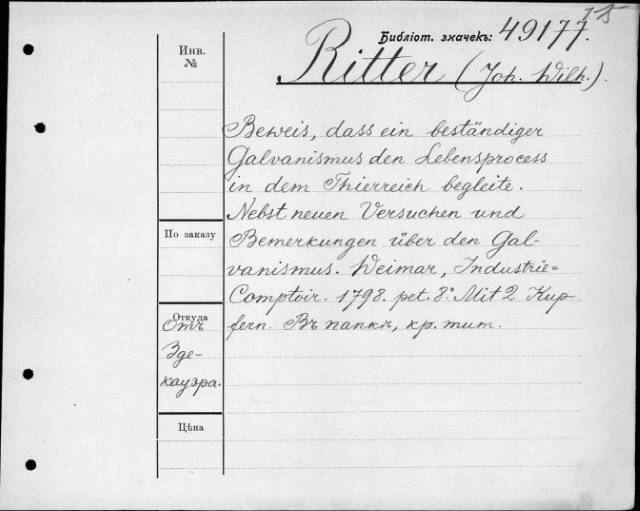 15
Библіот. значекъ: 49177.
Инв.
№
Ritter (Joh. Wilh.).
Beweis, dass ein beständiger
Galvanismus den Lebensprocess
in dem Thierreich begleite.
Nebst neuen Versuchen und
По заказу
Bemerkungen über den Gal-
vanismus. Weimar, Industrie=
Comptoir. 1798. pet. 8°. Mit 2 Kup
Откуда
Отъ
fern. Въ папкѣ, кр. тит.
Зде-
кауэра.
Цѣна